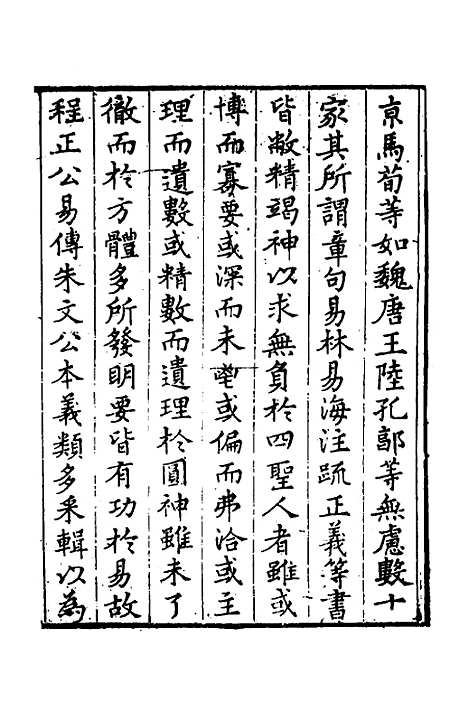 京馬荀等如魏唐王陸孔郭等無慮數十
家其所謂章句易林易海注疏正義等書
皆敝精竭神以求無負於四聖人者雖或
博而寡要或深而未鬯或偏而弗洽或主
理而遺數或精數而遺理於圓神雖未了
徹而於方體多所發明要皆有功於易故
程正公易傳朱文公本義類多采輯以為